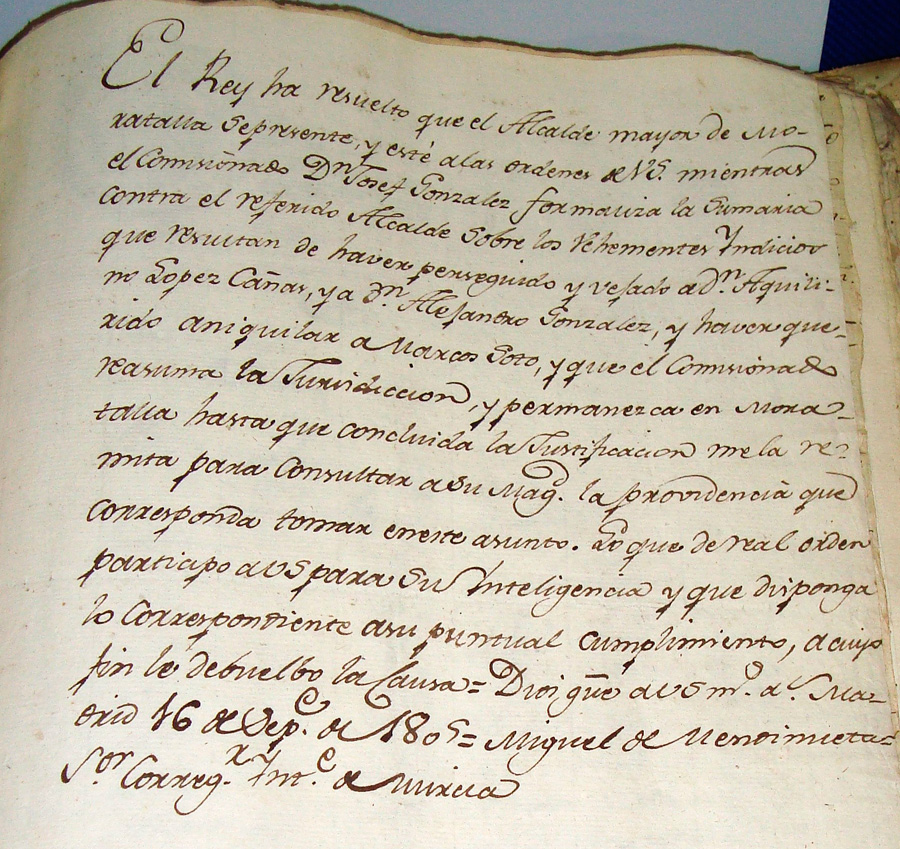 El Rey ha resuelto que el Alcalde mayor de Mo-
ratalla sepresente, y esté alas ordenes de VS. mientras
el Comisionado Dn Josef Gonzalez formaliza la Sumaria
contra el referido Alcalde sobre los Vehementes Yndicios
que resultan de haver perseguido y vejado a Dn. Aquili-
no Lopez Cañas, y a Dn. Alejandro Gonzalez, y haver que=
rido aniquilar a Marcos Soto, y que el Comisionado
reasuma la Jurisdiccion, y permanezca en Mora-
talla hasta que concluida la Justificacion me la re-
mita para Consultar a Su Magd. la providencia que
Corresponda tomar eneste asunto. Lo que de real orden
participo a VS para Su Ynteligencia y que disponga
lo Correspondiente asu puntual cumplimiento, a cuyo
fin le debuelbo la Causa= Dios gue a VS ms. as. Ma-
drid 16 de Sepe. de 1805= Miguel de Mendinueta=
Sor Corregr. Ynte. de Murcia